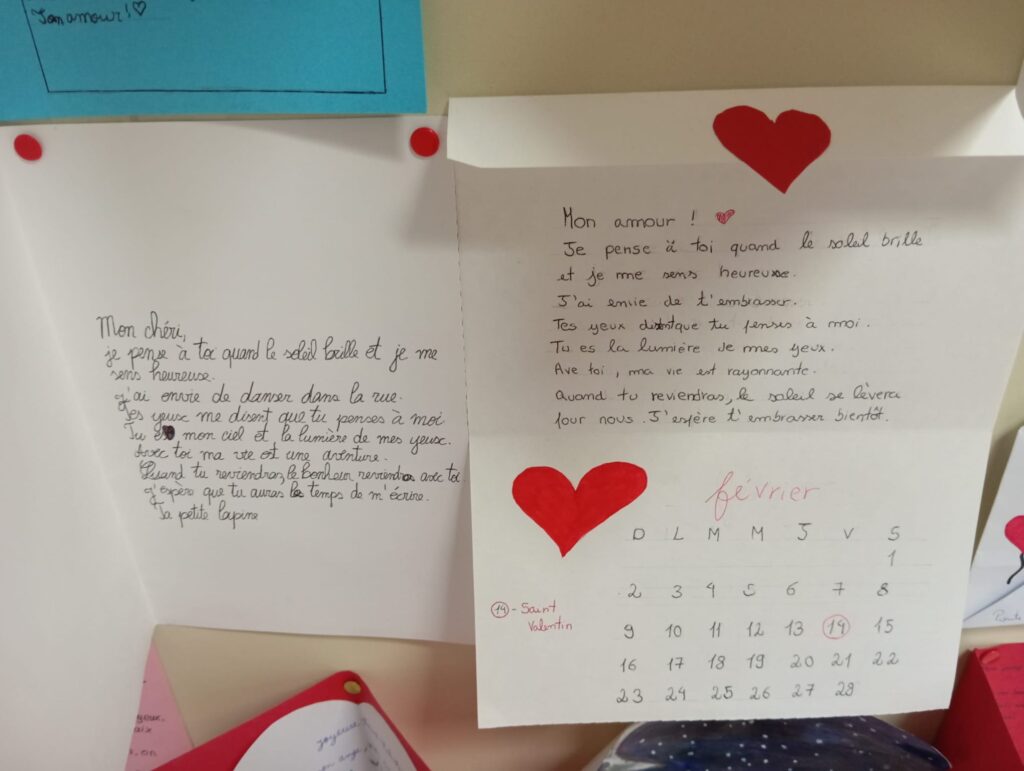 Ton amour !♡
Mon chéri,
je pense à toi quand le soleil brille et je me
sens heureuse.
J'ai envie de danser dans la rue.
Tes yeux me disent que tu penses à moi
Tu es mon ciel et la lumière de mes yeux.
Avec toi ma vie est une aventure.
Quand tu reviendras, le bonheur reviendra avec toi
J'espère que tu auras le temps de m'écrire.
Ta petite lapine
Mon amour !
Je pense à toi quand le soleil brille
et je me sens heureuse.
J'ai envie de t'embrasser.
Tes yeux disent que tu penses à moi.
Tu es la lumière de mes yeux.
Ave toi, ma vie est rayonnante.
Quand tu reviendras, le soleil se lèvera
pour nous. J'espère t'embrasser bientôt.
février
D L M M J V S
1
2 3 4 5 6 7 8
9 10 11 12 13 14 15
16 17 18 19 20 21 22
23 24 25 26 27 28
14 - Saint
Valentin
joyeuse